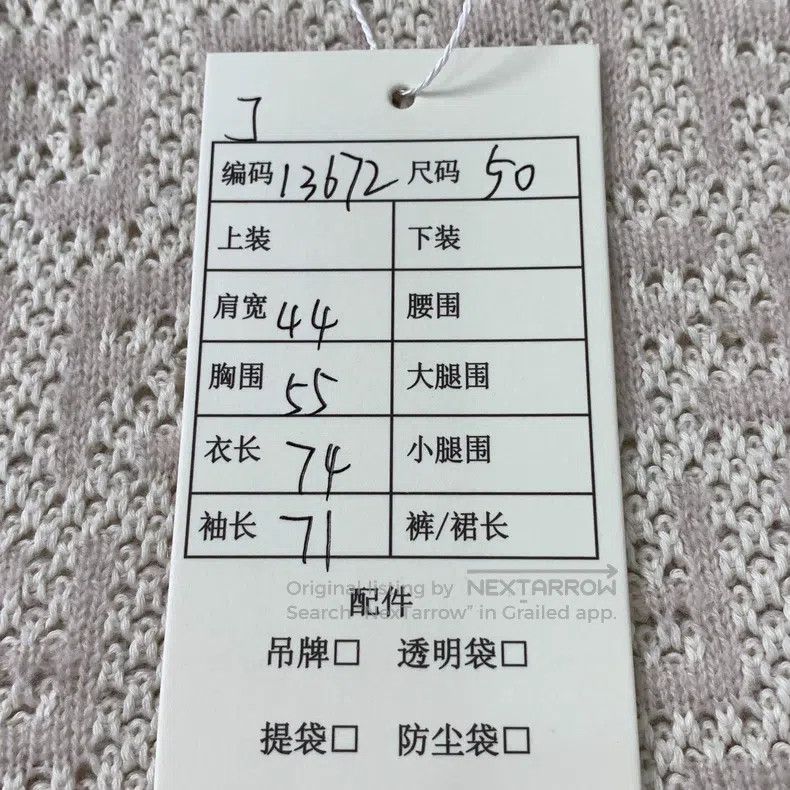 编码 13672 尺码 50
上装 下装
肩宽 44 腰围
胸围 55 大腿围
衣长 74 小腿围
袖长 71 裤/裙长
Original listing by NEXTARROW
配件
Search "NexTarrow" in Grailed app.
吊牌□ 透明袋□
提袋□ 防尘袋□